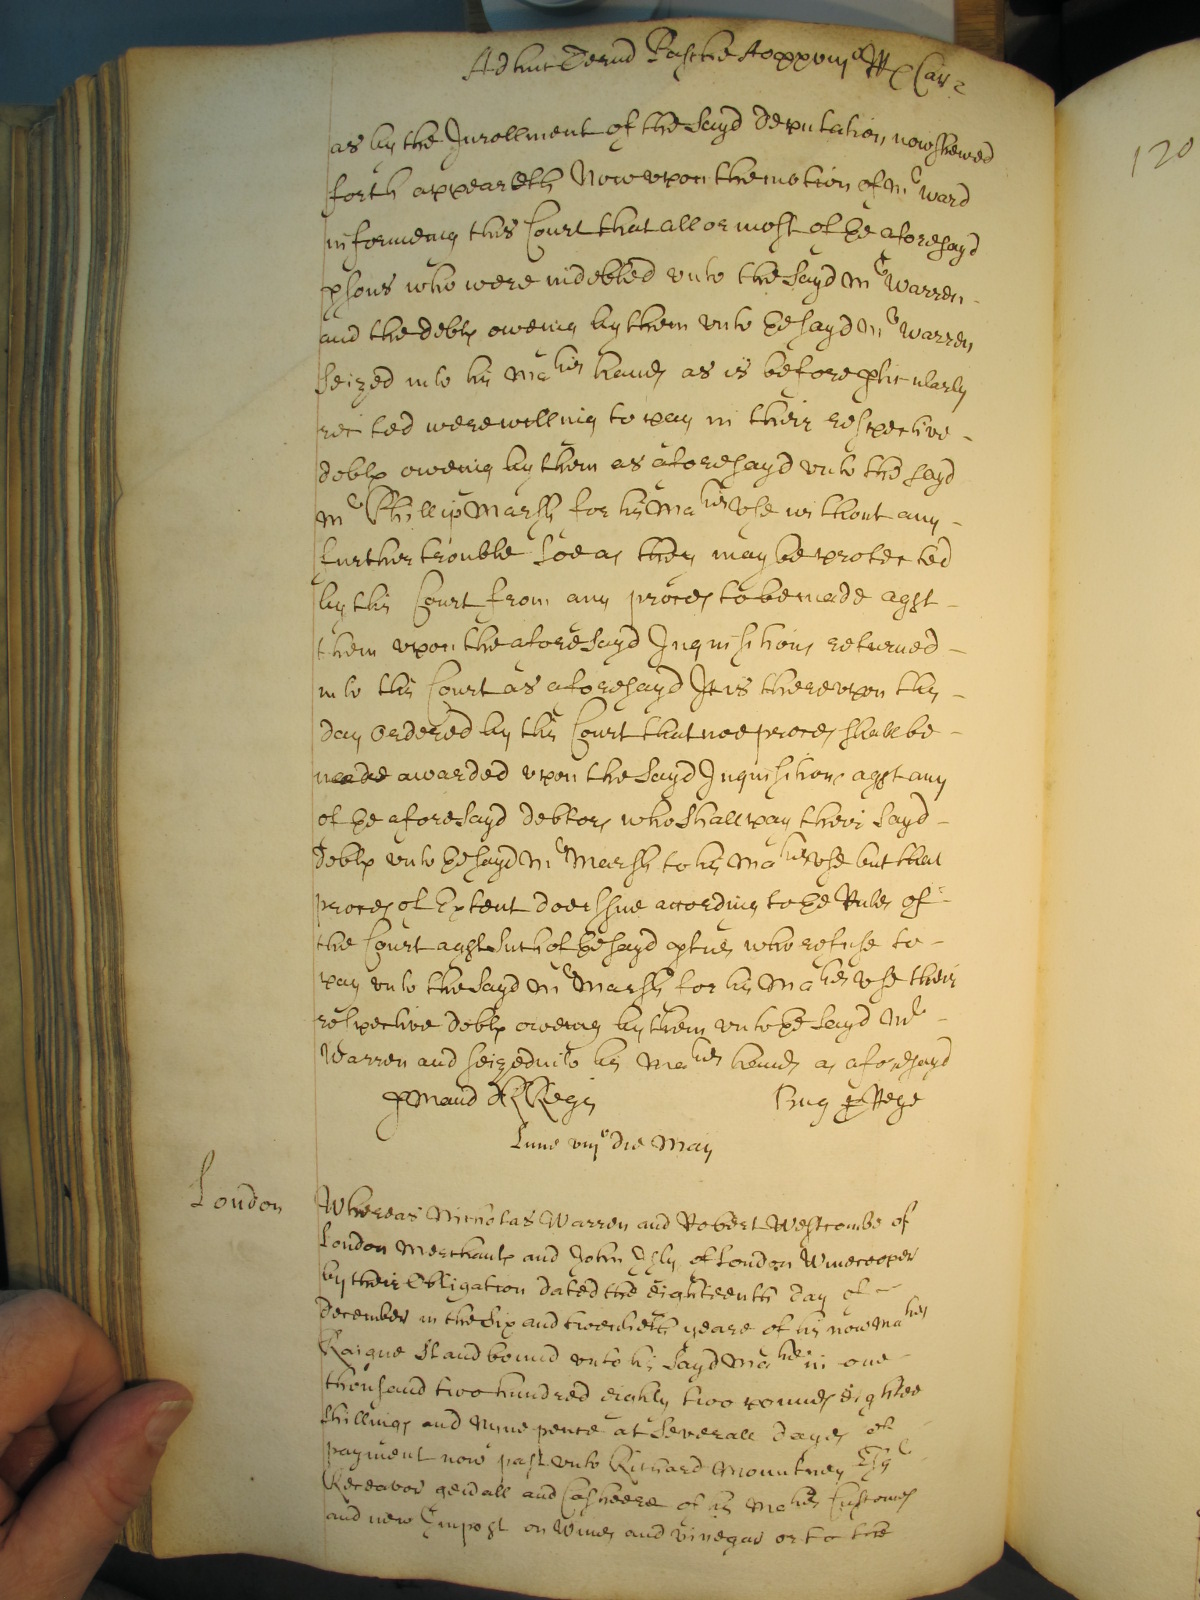 Adhuc Termi Pasche Ao xxviij o RR Car 2
as by the Inrollment of the sayd deputation now shewed
forth appeareth Now upon the motion of Mr Ward
informeing this Court that all or most of ye aforesayd
psons who were indebted unto the sayd Mr Warren
and the debts oweing by them unto ye sayd Mr Warren
seized into his Maties hands as is before pticularly
recited were willing to pay in their respective
debts oweing by them as aforesayd unto the sayd
Mr Phillip Marsh for his Maties use without any
further trouble soe as they may be protected
by this Court from any proces to be made agst
them upon the aforesayd Inquisitions returned
into this Court as aforesayd It is thereupon this
day Ordered by this Court that noe proces shall be
made awarded upon the sayd Inquisitions agst any
of ye aforesayd debtors who shall pay their sayd
debts unto ye sayd Mr Marsh to his Maties use but that
proces of Extent doe issue according to ye Rules of
the Court agst such of ye sayd pties who refuse to
pay unto the sayd Mr Marsh for his Maties use their
respective debts oweing by them unto ye sayd Mr
Warren and seized into his Maties hands as aforesayd
Ing p Rege
Lune viijo die Maij
London
Whereas Nicholas Warren and Robert Westcombe of
London Merchants and John of London Winecooper
by their Obligation dated the Eighteenth day of
December in the Six and twentieth yeare of his now Maties
Raigne stand bound unto his sayd Matie in one
thousand two hundred eighty two pounds eightee
shillings and Nyne pence at severall dayes of
payment now past unto Richard Mountney Esqr
Receavor genall and Casheere of his Maties Customes
and new Impost on Wines and Vinegar or to the
120